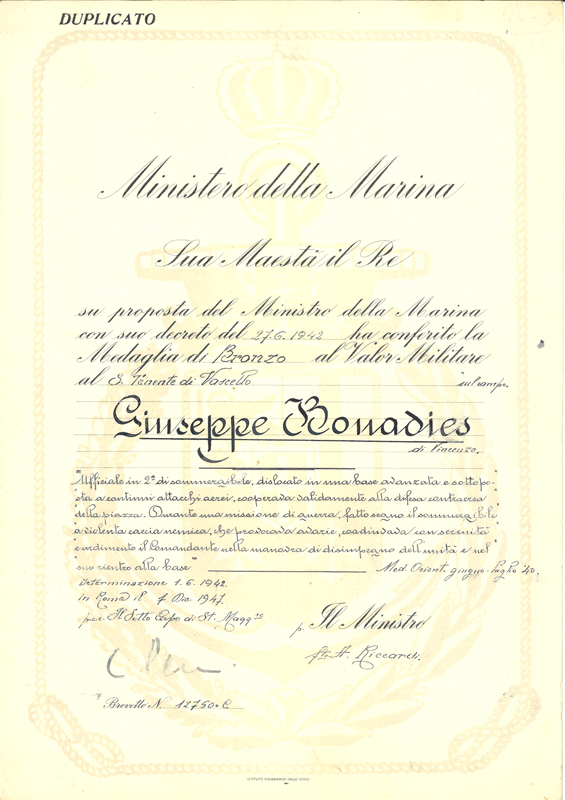 DUPLICATO
Ministero della Marina
Sua Maestà il Re
su proposta del Ministro della Marina
con suo decreto del 27.6.1942 ha conferito la
Medaglia di Bronzo al Valor Militare
al S. Tenente di Vascello sul campo.
Giuseppe Bonadies
di Vincenzo.
"Ufficiale in 2ª di sommergibile, dislocato in una base avanzata e sottopo-
sta a continui attacchi aerei, cooperava validamente alla difesa contraerea
della piazza. Durante una missione di guerra, fatto segno il sommergibile
a violenta caccia nemica, che provocava avarie, coadiuvava con serenità
e ardimento il Comandante nella manovra di disimpegno dell'unità e nel
suo rientro alla base" Med. Orient. giugno-luglio '40.
Determinazione 1.6.1942.
in Roma il 4 Dic. 1947.
per Il Sotto Capo di St. Magg.re
p. Il Ministro
fto A. Riccardi.
Brevetto N. 12750-C